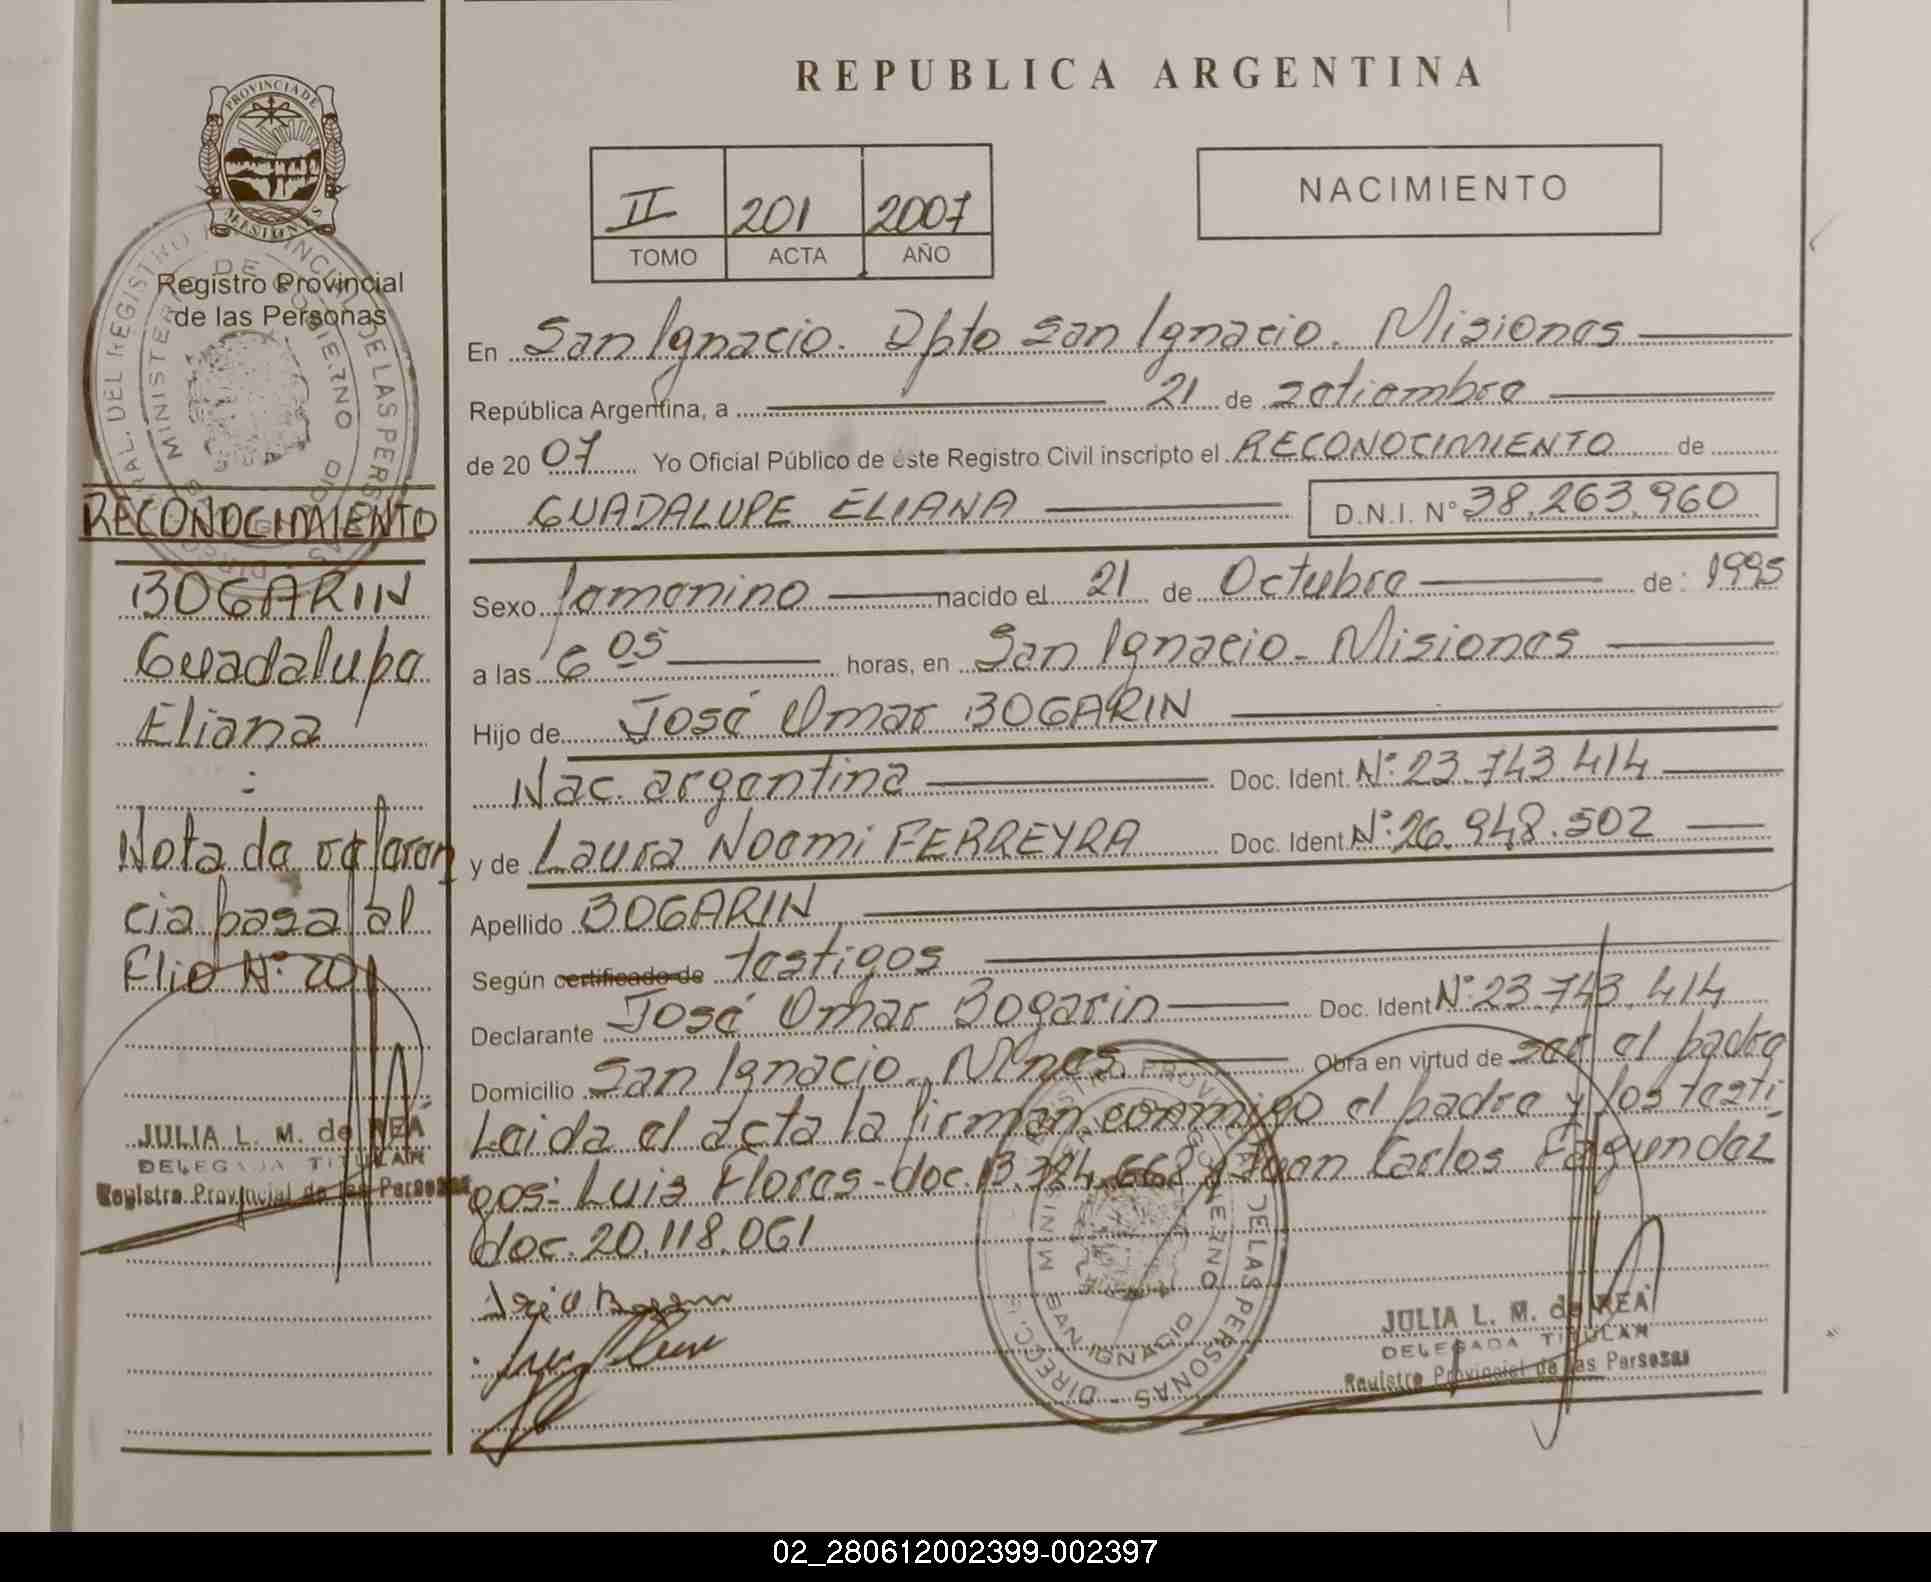 REPUBLICA ARGENTINA
PROVINCIA DE
MISIONES
Registro Provincial
de las Personas
II 201 2007
TOMO ACTA AÑO
NACIMIENTO
RECONOCIMIENTO
BOGARIN
Guadalupe
Eliana
Nota de referen
cia pasa al
Flio Nº 201
JULIA L. M. de REA
DELEGADA TITULAR
Registro Provincial de las Personas
En San Ignacio. Dpto San Ignacio. Misiones
República Argentina, a 21 de setiembre
de 2007 Yo Oficial Público de este Registro Civil inscripto el RECONOCIMIENTO de
GUADALUPE ELIANA D.N.I. Nº 38.263.960
Sexo femenino nacido el 21 de Octubre de: 1995
a las 6 05 horas, en San Ignacio - Misiones
Hijo de José Omar BOGARIN
Nac. argentina Doc. Ident. Nº: 23.743.414
y de Laura Noemi FERREYRA Doc. Ident Nº: 26.948.502
Apellido BOGARIN
Según certificado de testigos
Declarante José Omar Bogarin Doc. Ident Nº: 23.743.414
Domicilio San Ignacio Mnes. Obra en virtud de ser el padre
Leida el acta la firman conmigo el padre y los testi
gos: Luis Flores - doc. 13.324.668 y Juan Carlos Faguendez
doc. 20.118.061
JULIA L. M. de REA
DELEGADA TITULAR
Registro Provincial de las Personas
02_280612002399-002397